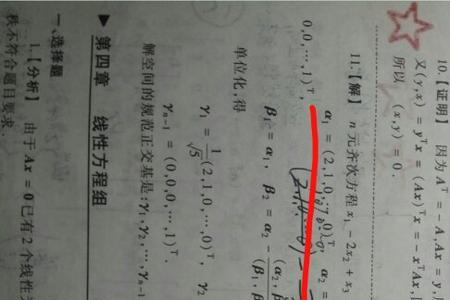 10.【证明】 因为 Aᵀ = -A, Ax = y,
又(y,x) = yᵀx = (Ax)ᵀx = -xᵀAx
所以 (x,y) = 0.
11.【解】 n 元齐次方程 x₁ - 2x₂ + x₃
α₁ = (2,1,0,…,0)ᵀ, α₂ =
0,0,…,1)ᵀ,
β₁ = α₁, β₂ = α₂ -
单位化,得
γ₁ = 1/√5 (2,1,0,…,0)ᵀ, γ₂
γₙ₋₁ = (0,0,0,…,1)ᵀ.
解空间的规范正交基是:γ₁,γ₂,…,γₙ₋₁
▶ 第四章 线性方程组
一、选择题
1.【分析】 由于 Ax = 0 已有 2 个线性
秩不符合题目要求.